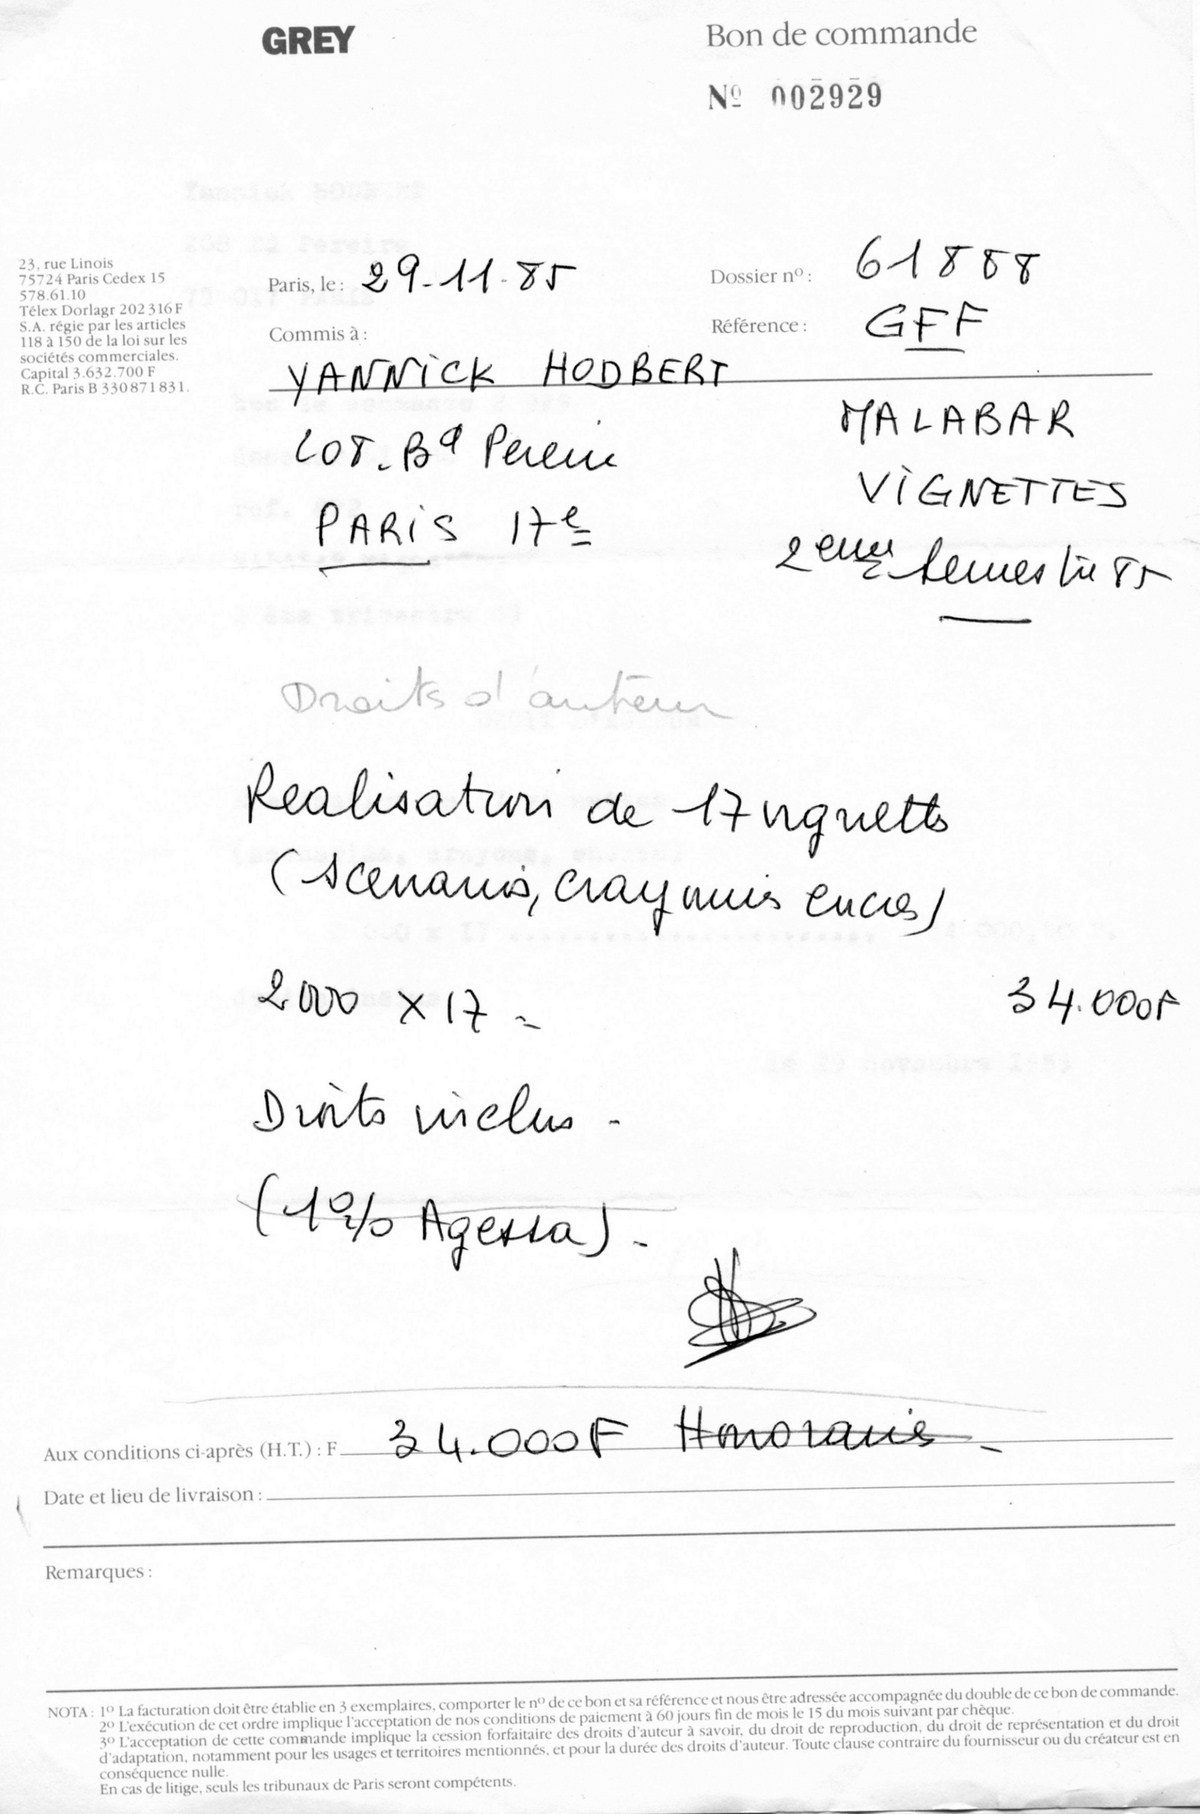 GREY
Bon de commande
Nº 002929
23, rue Linois
75724 Paris Cedex 15
578.61.10
Télex Dorlagr 202 316 F
S.A. régie par les articles
118 à 150 de la loi sur les
sociétés commerciales.
Capital 3.632.700 F
R.C. Paris B 330871831.
Paris, le : 29-11-85
Dossier nº : 61888
Commis à :
Référence : GFF
YANNICK HODBERT
Bd Pereire
PARIS 17e
MALABAR
VIGNETTES
2eme Semestre 85
Droits d'auteur
Realisation de 17 vignettes
(scenarios, crayonnés encrés)
2000 x 17 = 34.000F
Droits inclus -
(1% Agessa) -
Aux conditions ci-après (H.T.) : F 34.000F Honoraires -
Date et lieu de livraison :
Remarques :
NOTA : 1º La facturation doit être établie en 3 exemplaires, comporter le nº de ce bon et sa référence et nous être adressée accompagnée du double de ce bon de commande.
2º L'exécution de cet ordre implique l'acceptation de nos conditions de paiement à 60 jours fin de mois le 15 du mois suivant par chèque.
3º L'acceptation de cette commande implique la cession forfaitaire des droits d'auteur à savoir, du droit de reproduction, du droit de représentation et du droit
d'adaptation, notamment pour les usages et territoires mentionnés, et pour la durée des droits d'auteur. Toute clause contraire du fournisseur ou du créateur est en
conséquence nulle.
En cas de litige, seuls les tribunaux de Paris seront compétents.